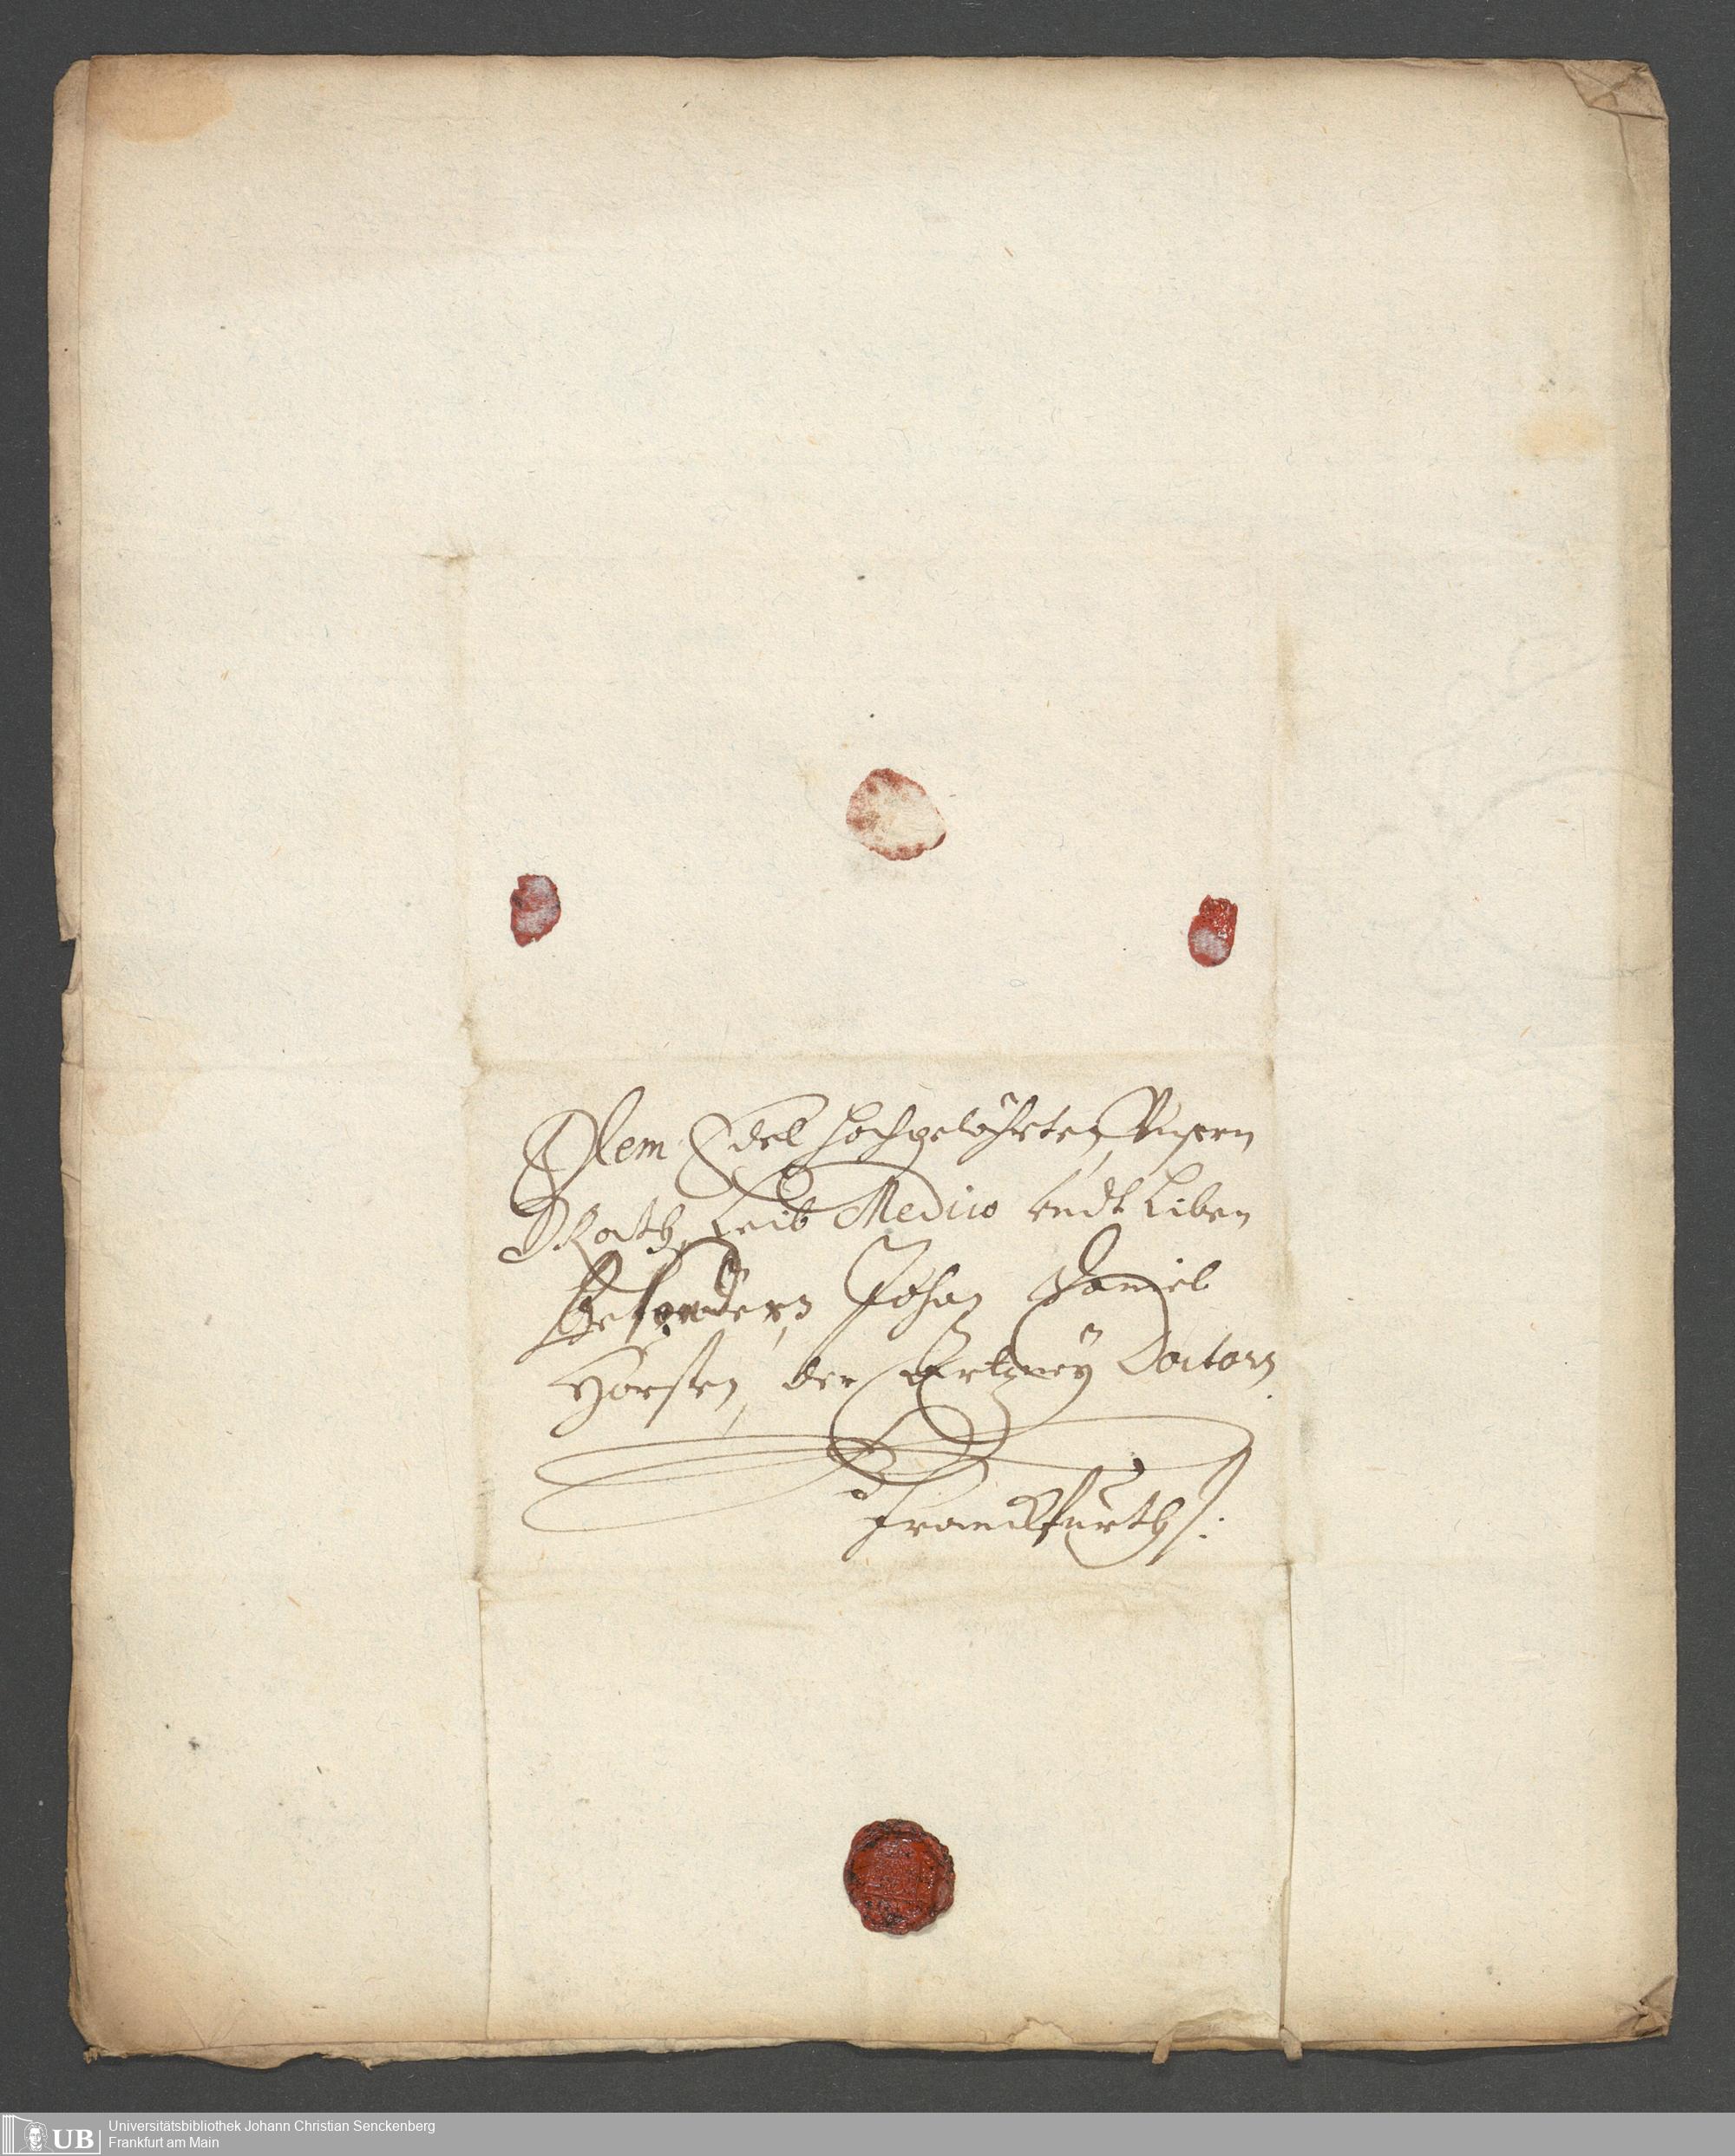 Dem Edel hochgelöhrten, Unsern
Rath, Leib Medico undt Liben
Besondern, Johan Daniel
Horsten, der Artzney Doctorn
Franckfurth
UB Universitätsbibliothek Johann Christian Senckenberg
Frankfurt am Main